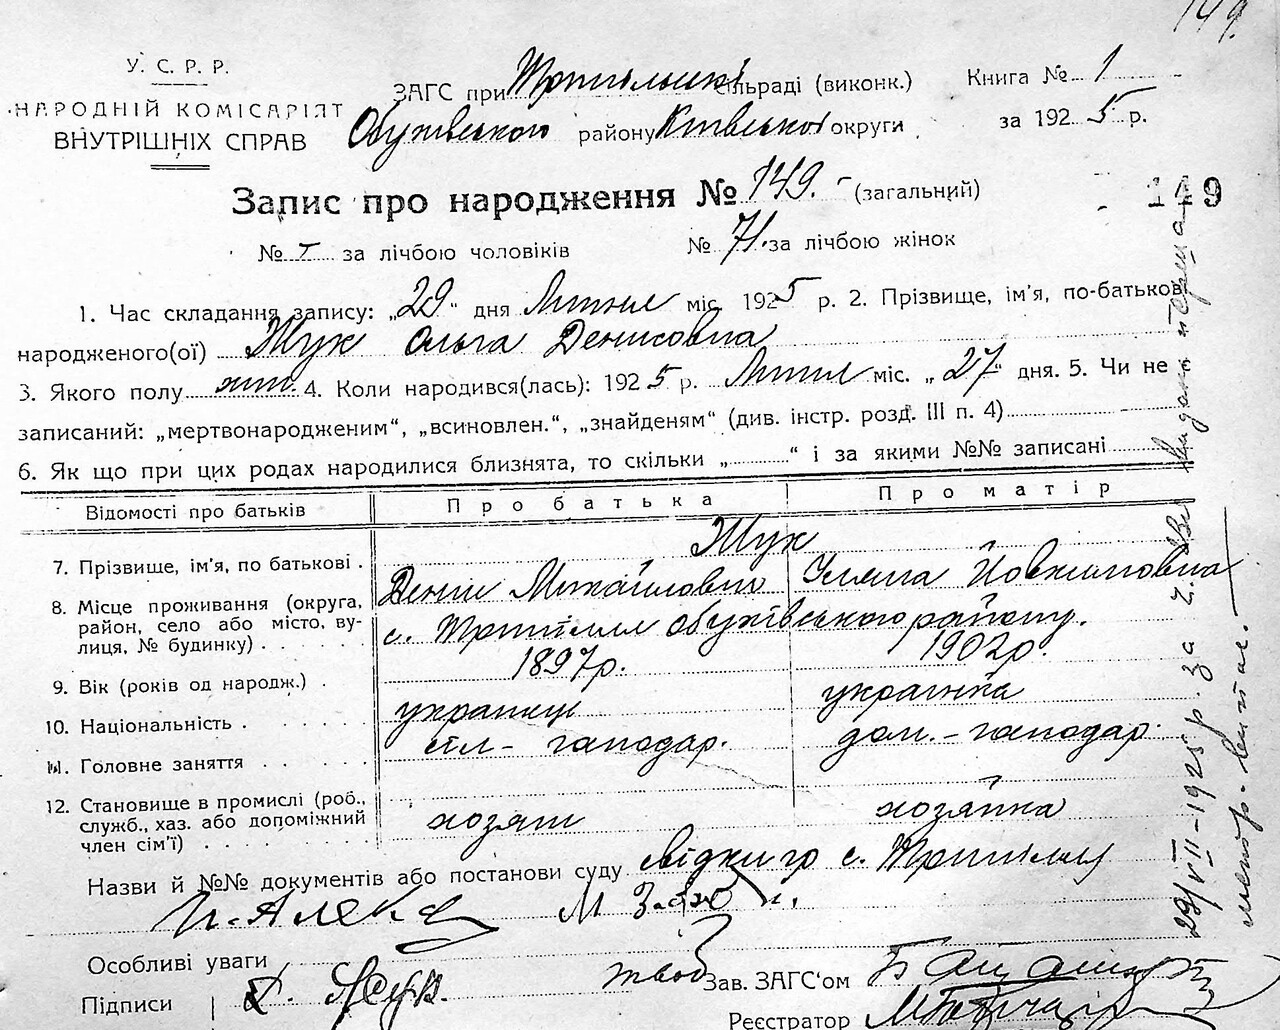 149.
У. С. Р. Р.
НАРОДНІЙ КОМІСАРІЯТ
ВНУТРІШНІХ СПРАВ
ЗАГС при Трипільській сільраді (виконк.)
Обухівського району Київської округи
Книга № 1
за 1925 р.
Запис про народження № 149. (загальний)
149
№ I за лічбою чоловіків № 71. за лічбою жінок
1. Час складання запису: „29" дня Липня міс. 1925 р. 2. Прізвище, ім'я, по-батькові
народженого(ої) Жук Ольга Денисовна
3. Якого полу жін. 4. Коли народився(лась): 1925 р. Липня міс. „27" дня. 5. Чи не
записаний: „мертвонародженим", „всиновлен.", „знайденям" (див. інстр. розд. III п. 4)
6. Як що при цих родах народилися близнята, то скільки „ " і за якими №№ записані
Відомості про батьків Про батька Про матір
Жук
7. Прізвище, ім'я, по батькові . Денис Михайлович Уляна Йовхимовна
8. Місце проживання (округа,
район, село або місто, ву-
лиця, № будинку) . . . . . . с. Трипілля обухівського району.
9. Вік (років од народж.) . 1897р. 1902р.
10. Національність . . . . . . українець українка
11. Головне заняття . . . . . . сіл- господар. дом.-господар.
12. Становище в промислі (роб.,
служб., хаз. або допоміжний
член сім'ї) . . . . . . . . . хозяїн хозяйка
Назви й №№ документів або постанови суду с. Трипілля
Особливі уваги
Підписи Д. Жук. Зав. ЗАГС'ом
Реєстратор
29/VII-1925 р. за ч.